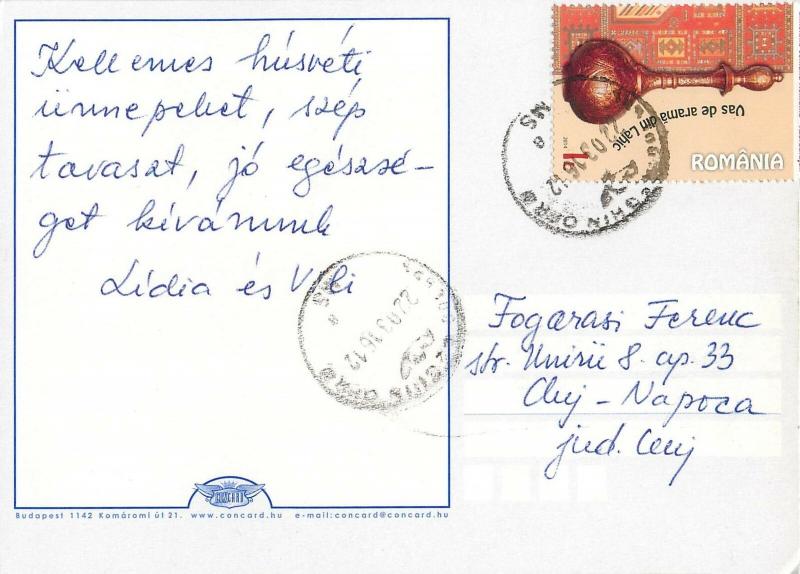 Kellemes húsvéti
ünnepeket, szép
tavaszt, jó egészsé-
get kívánunk
Lídia és Vili
Vas de aramă din Lahic
2014
ROMÂNIA
22.03.16.12
NS a
22.03.16.12
NS a
Fogarasi Ferenc
str. Unirii 8. ap. 33
Cluj - Napoca
jud. Cluj
CONCARD
Budapest 1142 Komáromi út 21. www.concard.hu e-mail:concard@concard.hu